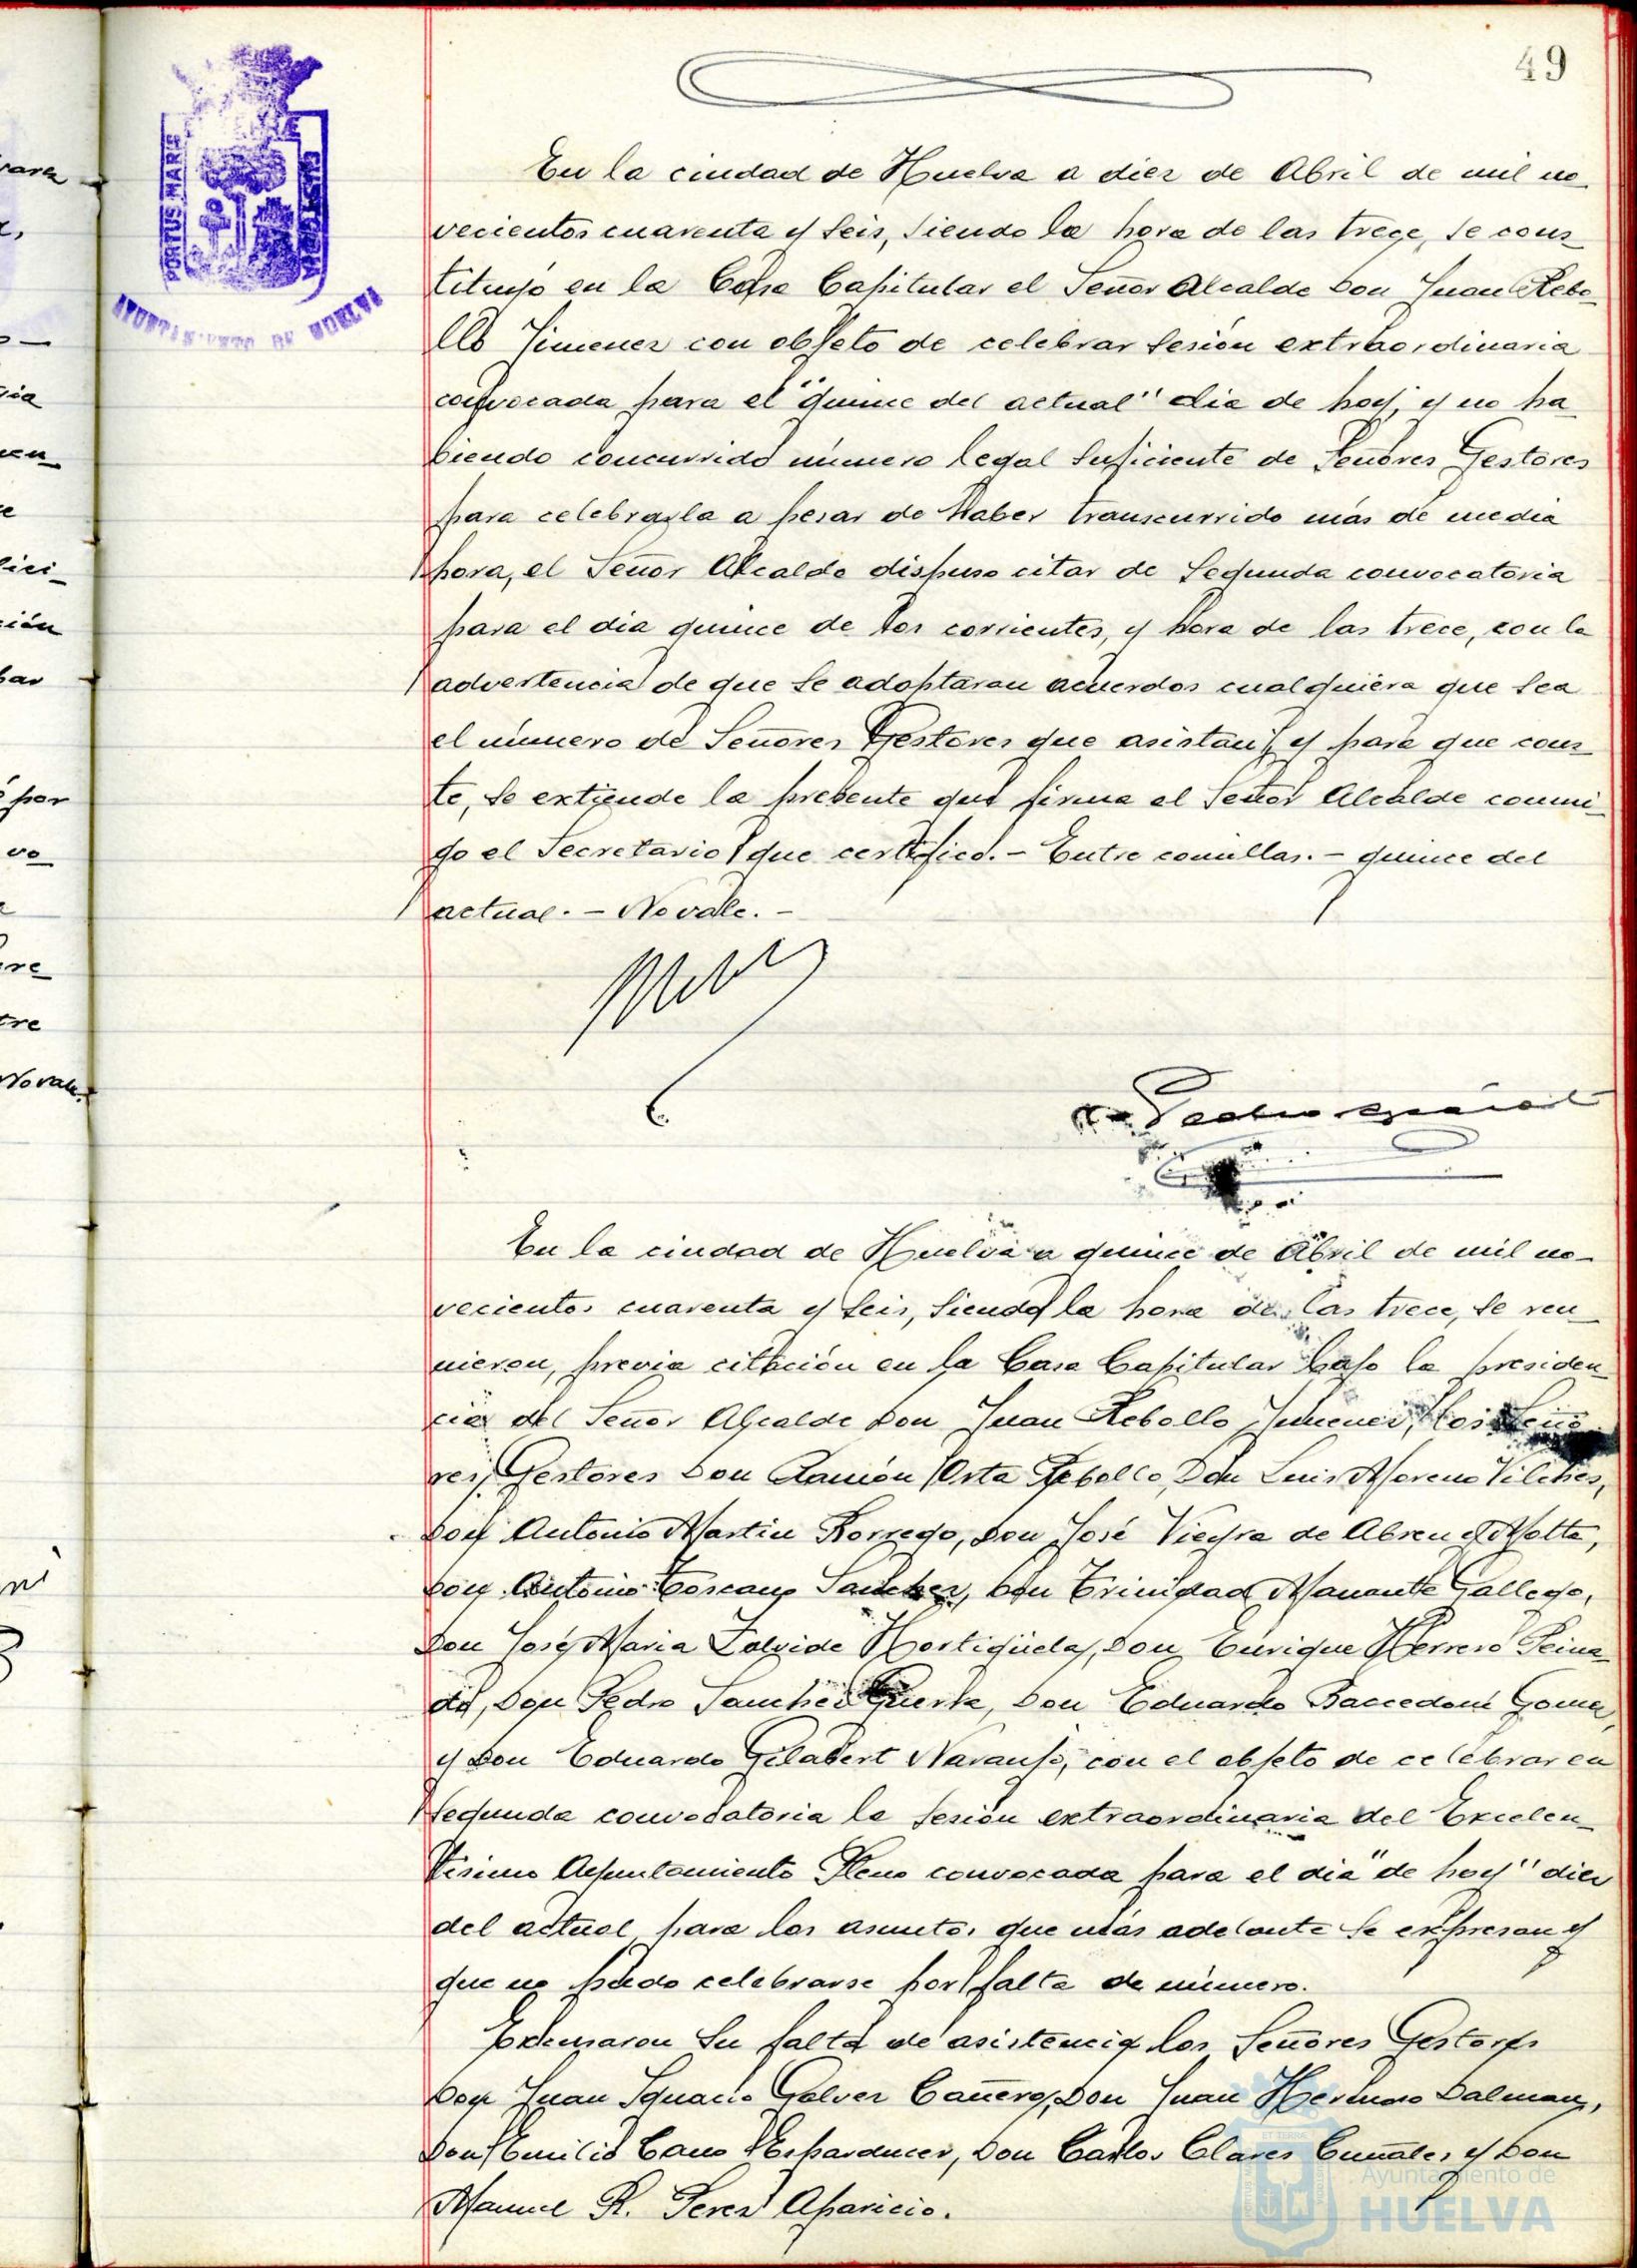 49
PORTUS MARIS
AYUNTAMIENTO DE HUELVA
En la ciudad de Huelva a diez de Abril de mil no-
vecientos cuarenta y seis, siendo la hora de las trece, se cons-
tituyó en la Casa Capitular el Señor Alcalde Don Juan Rebo-
llo Jimenez con objeto de celebrar sesión extraordinaria
convocada para el "quince del actual" dia de hoy, y no ha-
biendo concurrido número legal suficiente de Señores Gestores
para celebrarla a pesar de haber transcurrido más de media
hora, el Señor Alcalde dispuso citar de segunda convocatoria
para el dia quince de los corrientes, y hora de las trece, con la
advertencia de que se adoptaran acuerdos cualquiera que sea
el número de Señores Gestores que asistan, y para que cons-
te, se extiende la presente que firma el Señor Alcalde conmi-
go el Secretario que certifico.- Entre comillas.- quince del
actual.- No vale.-
En la ciudad de Huelva a quince de Abril de mil no-
vecientos cuarenta y seis, siendo la hora de las trece, se reu-
nieron, previa citación en la Casa Capitular bajo la presiden-
cia del Señor Alcalde Don Juan Rebollo Jimenez, los Seño-
res Gestores Don Ramón Orta Rebollo, Don Luis Moreno Vilches,
Don Antonio Martin Borrego, Don José Vieyra de Abreu y Motta,
Don Antonio Toscano Sanchez, Don Trinidad Manante Gallego,
Don José Maria Zalvide Hortigüela, Don Enrique Herrero Peina-
do, Don Pedro Sanchez Guerra, Don Eduardo Baccedoni Goma,
y Don Eduardo Gilabert Naranjo, con el objeto de celebrar en
segunda convocatoria la sesión extraordinaria del Excelen-
tisimo Ayuntamiento Pleno convocada para el dia "de hoy" diez
del actual para los asuntos que más adelante se expresan y
que no pudo celebrarse por falta de número.
Excusaron su falta de asistencia los Señores Gestores
Don Juan Ignacio Galvez Cañero, Don Juan Hermoso Dalmau,
Don Emilio Cano Esparducer, Don Carlos Clares Cuñales y Don
Manuel R. Perez Aparicio.
Ayuntamiento de
HUELVA